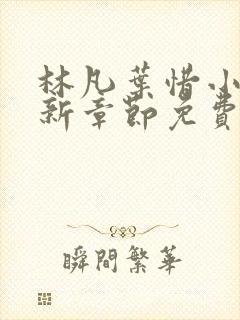 林凡葉惜小
新章節免費
瞬間繁華